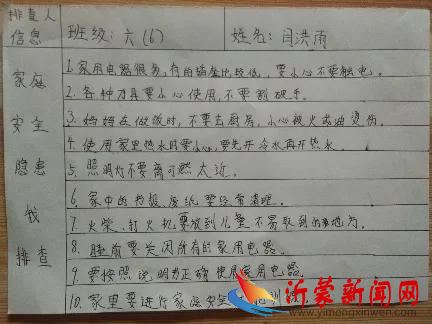 排查人信息 班级：六(6) 姓名：闫洪雨
家庭安全隐患我排查
1.家用电器很多，有的插座比较低，要小心不要触电。
2.各种刀具要小心使用，不要割破手。
3.妈妈在做饭时，不要去厨房，小心被火或油烫伤。
4.使用家里热水时要小心，要先开冷水再开热水。
5.照明灯不要离可燃太近。
6.家中的书报、废纸要经常清理。
7.火柴、打火机要放到儿童不易取到的地方。
8.睡前要关闭所有的家用电器。
9.要按照说明书正确使用家用电器。
10.家里要进行家庭安全
沂蒙新闻网
www.yimengxinwen.com